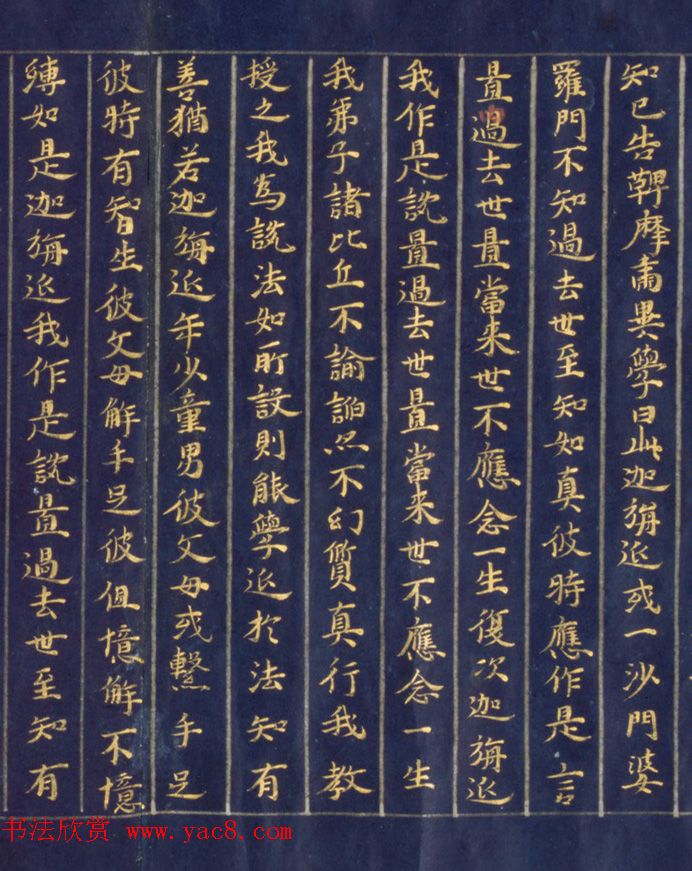 知已告鞞摩肅異學曰此迦旃延或一沙門婆
羅門不知過去世至知如真彼時應作是言
置過去世置當来世不應念一生復次迦旃延
我作是說置過去世置當来世不應念一生
我弟子諸比丘不諭諂不幻質真行我教
授之我為說法如所設則能學延於法知有
善猶若迦旃延年少童男彼父母或繫手足
彼時有智生彼父母解手足彼但憶解不憶
縛如是迦旃延我作是說置過去世至知有
书法欣赏 www.yac8.com